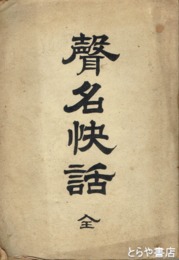 聲名快話
全
とらや書店